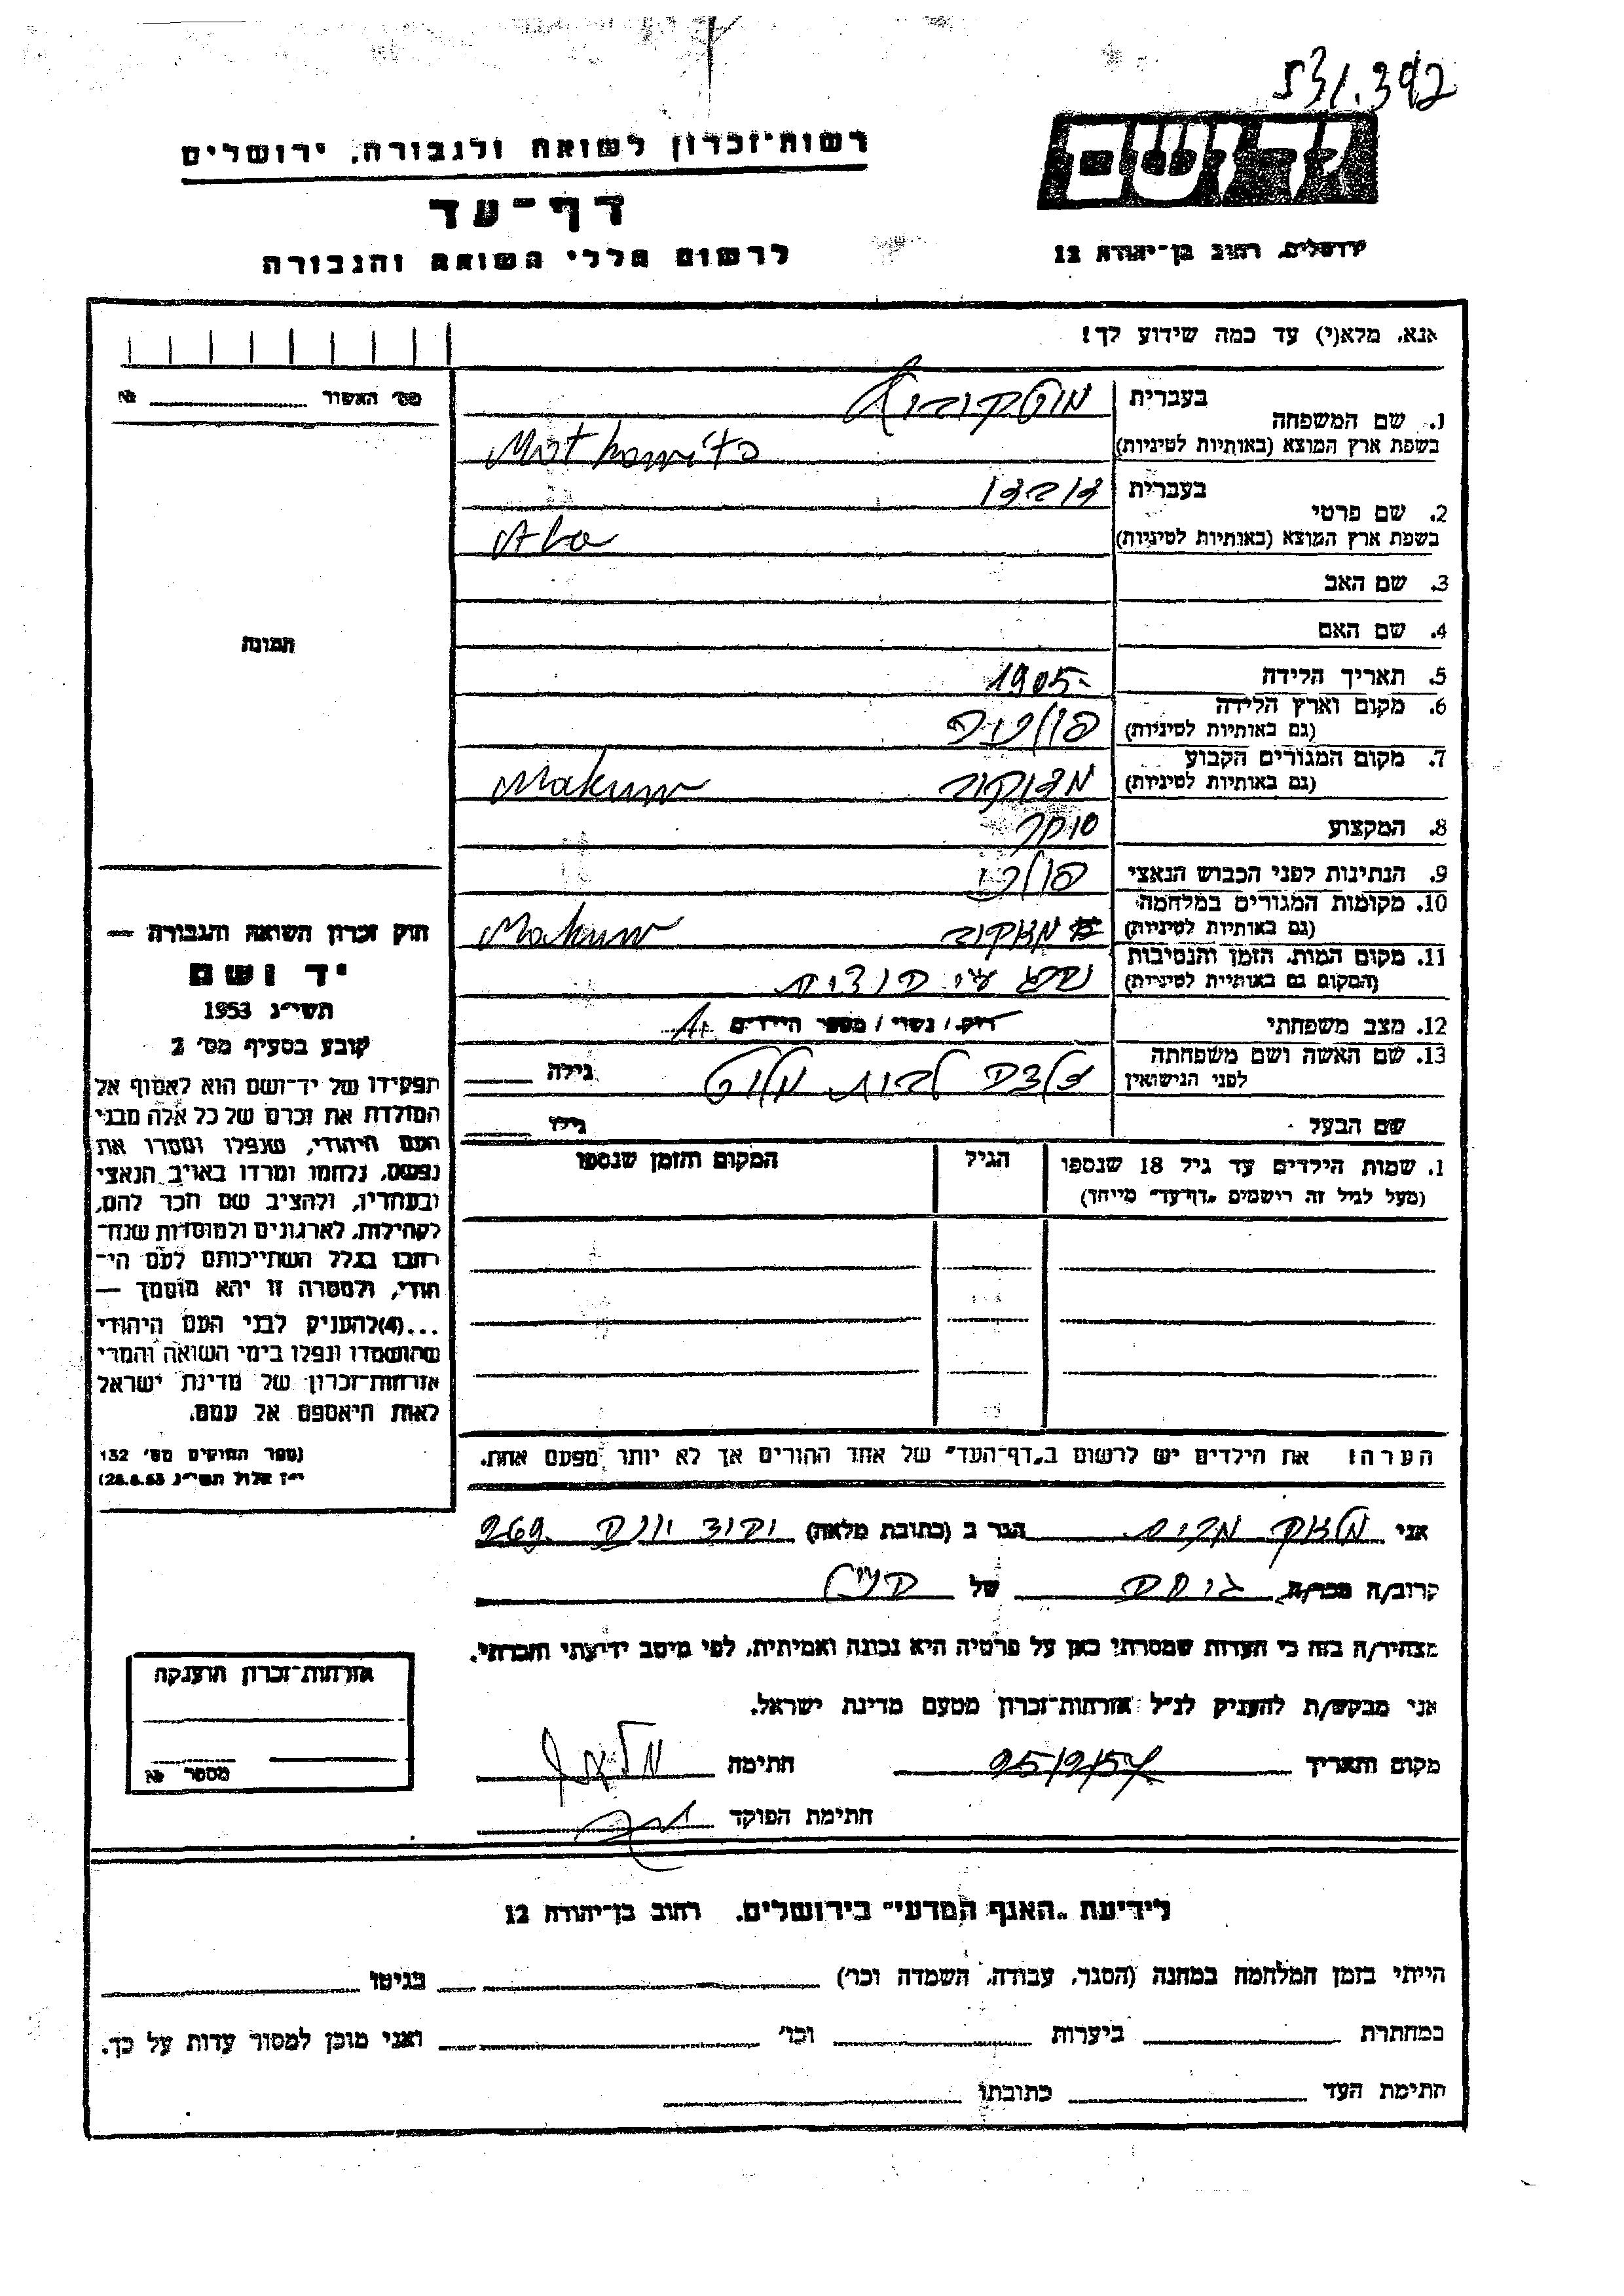 531.392
רשות־זכרון לשואה ולגבורה, ירושלים
יד ושם
דף־עד
ירושלים, רחוב בן־יהודה 12
לרשום חללי השואה והגבורה
אנא, מלא(י) עד כמה שידוע לך!
מס׳ האשור № 
בעברית
1. שם המשפחה
בשפת ארץ המוצא (באותיות לטיניות)
בעברית
2. שם פרטי
בשפת ארץ המוצא (באותיות לטיניות)
3. שם האב
4. שם האם
תמונה
5. תאריך הלידה 1905
6. מקום וארץ הלידה
(גם באותיות לטיניות)
7. מקום המגורים הקבוע
(גם באותיות לטיניות) Makuw
8. המקצוע סוחר
9. הנתינות לפני הכבוש הנאצי
10. מקומות המגורים במלחמה
(גם באותיות לטיניות) Makuw
11. מקום המות, הזמן והנסיבות
(המקום גם באותיות לטיניות)
12. מצב משפחתי רווק / נשוי / מספר הילדים
13. שם האשה ושם משפחתה
לפני הנישואין לבית גילה
שם הבעל גילו
1. שמות הילדים עד גיל 18 שנספו הגיל המקום והזמן שנספו
(מעל לגיל זה רושמים „דף־עד״ מייחד)
חוק זכרון השואה והגבורה —
יד ושם
תשי״ג 1953
קובע בסעיף מס׳ 2
תפקידו של יד־ושם הוא לאסוף אל
המולדת את זכרם של כל אלה מבני
העם היהודי, שנפלו ומסרו את
נפשם, נלחמו ומרדו באויב הנאצי
ובעוזריו, ולהציב שם וזכר להם,
לקהילות, לארגונים ולמוסדות שנח־
רבו בגלל השתייכותם לעם הי־
הודי, ולמטרה זו יהא מוסמך —
...(4)להעניק לבני העם היהודי
שהושמדו ונפלו בימי השואה והמרי
אזרחות־זכרון של מדינת ישראל
לאות היאספם אל עמם.
(ספר החוקים מס׳ 132
י״ז אלול תשי״ג 28.8.53)
הערה: את הילדים יש לרשום ב„דף־העד״ של אחד ההורים אך לא יותר מפעם אחת.
אני הגר ב (כתובת מלאה) 269
קרוב/ה מכר/ה של
מצהיר/ה בזה כי העדות שמסרתי כאן על פרטיה היא נכונה ואמיתית, לפי מיטב ידיעתי והכרתי.
אני מבקש/ת להעניק לנ״ל אזרחות־זכרון מטעם מדינת ישראל.
מקום ותאריך 25/2/57 חתימה
חתימת הפוקד
אזרחות־זכרון הוענקה
מספר №
לידיעת „האגף המדעי״ בירושלים, רחוב בן־יהודה 12
הייתי בזמן המלחמה במחנה (הסגר, עבודה, השמדה וכו׳) בגיטו
במחתרת ביערות וכו׳ ואני מוכן למסור עדות על כך.
חתימת העד כתובתו